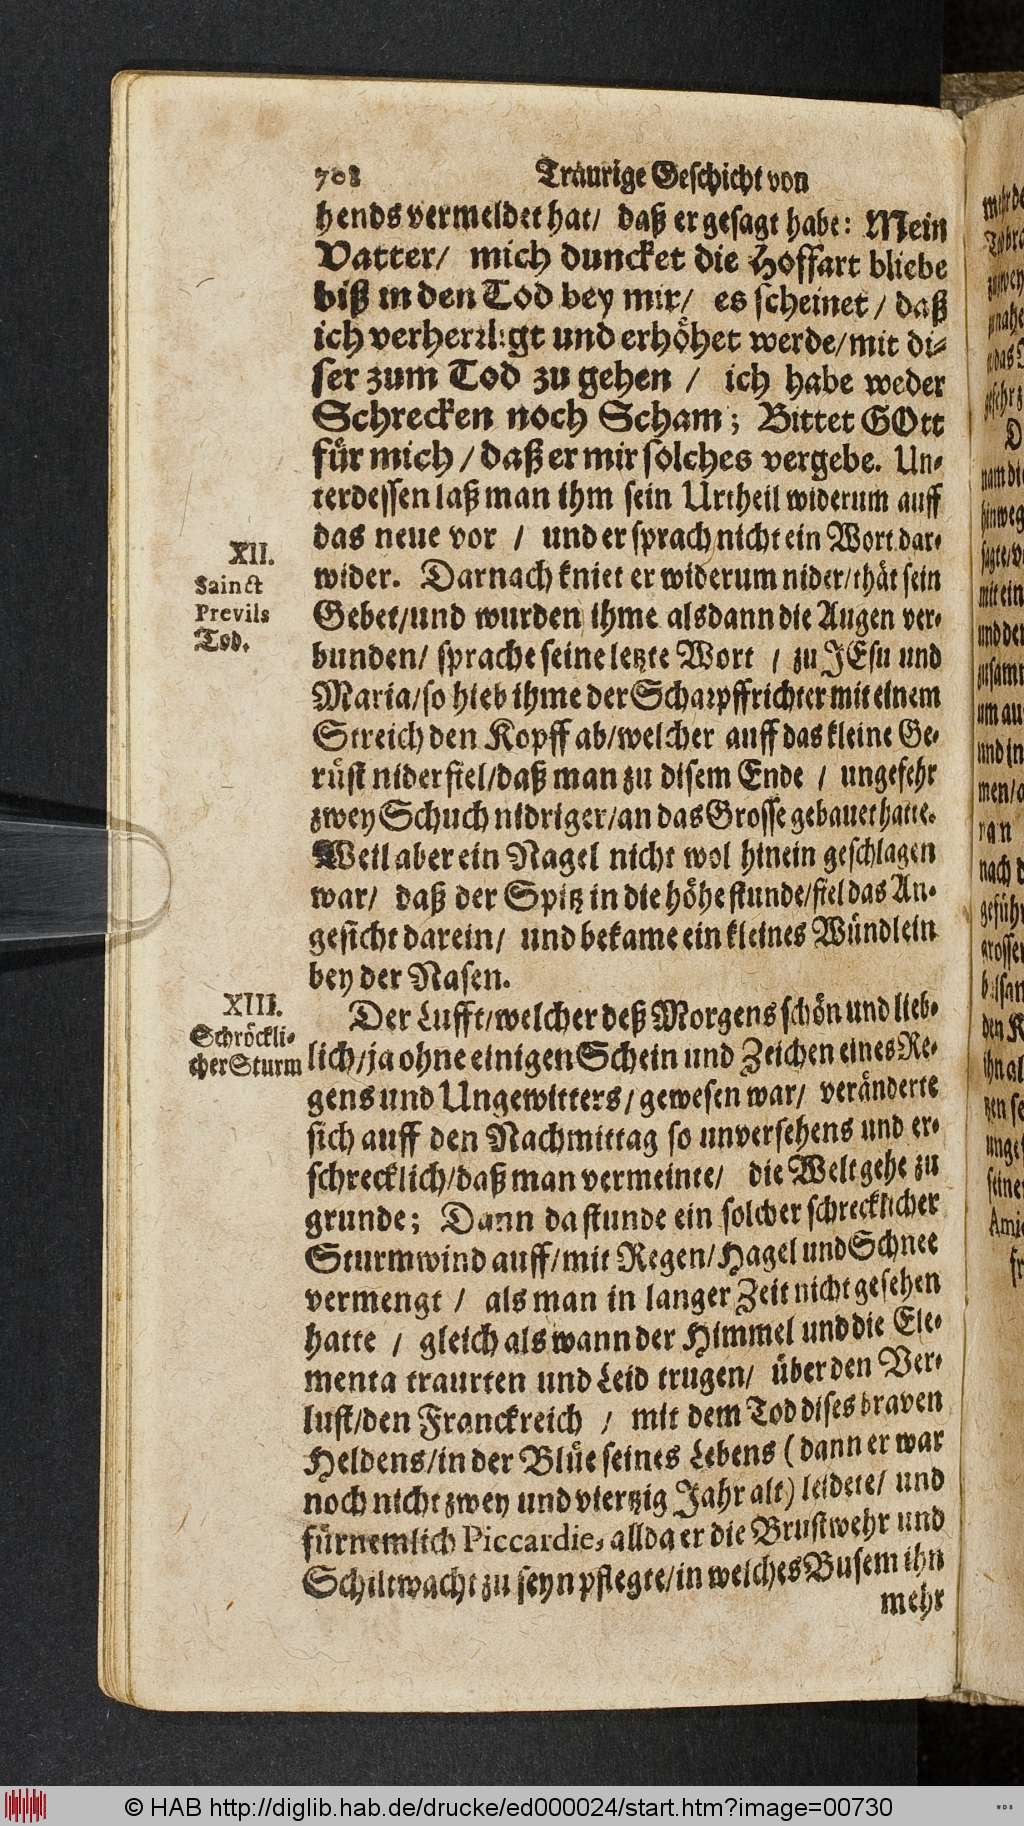 708 Traurige Geschicht von
hends vermeldet hat/ daß er gesagt habe: Mein
Vatter/ mich duncket die Hoffart bliebe
biß in den Tod bey mir/ es scheinet / daß
ich verherrligt und erhöhet werde/ mit di-
ser zum Tod zu gehen / ich habe weder
Schrecken noch Scham; Bittet GOtt
für mich / daß er mir solches vergebe. Un-
terdessen laß man ihm sein Urtheil widerum auff
das neue vor / und er sprach nicht ein Wort dar-
XII.
Sainct
Previls
Tod.
wider. Darnach kniet er widerum nider/ thät sein
Gebet/ und wurden ihme alsdann die Augen ver-
bunden/ sprache seine letzte Wort / zu JEsu und
Maria/ so hieb ihme der Scharpffrichter mit einem
Streich den Kopff ab/ welcher auff das kleine Ge-
rüst niderfiel/ daß man zu disem Ende / ungefehr
zwey Schuch nidriger/ an das Grosse gebauet hatte.
Weil aber ein Nagel nicht wol hinein geschlagen
war/ daß der Spitz in die höhe stunde/ fiel das An-
gesicht darein/ und bekame ein kleines Wündlein
bey der Nasen.
XIII.
Schröckli-
cher Sturm
Der Lufft/ welcher deß Morgens schön und lieb-
lich/ ja ohne einigen Schein und Zeichen eines Re-
gens und Ungewitters/ gewesen war/ veränderte
sich auff den Nachmittag so unversehens und er-
schrecklich/ daß man vermeinte/ die Welt gehe zu
grunde; Dann da stunde ein solcher schrecklicher
Sturmwind auff/ mit Regen/ Hagel und Schnee
vermengt / als man in langer Zeit nicht gesehen
hatte / gleich als wann der Himmel und die Ele-
menta traurten und Leid trugen/ über den Ver-
lust/ den Franckreich / mit dem Tod dises braven
Heldens/ in der Blüe seines Lebens (dann er war
noch nicht zwey und viertzig Jahr alt) leidete/ und
fürnemlich Piccardie, allda er die Brustwehr und
Schiltwacht zu seyn pflegte/ in welches Busem ihn
mehr
© HAB http://diglib.hab.de/drucke/ed000024/start.htm?image=00730